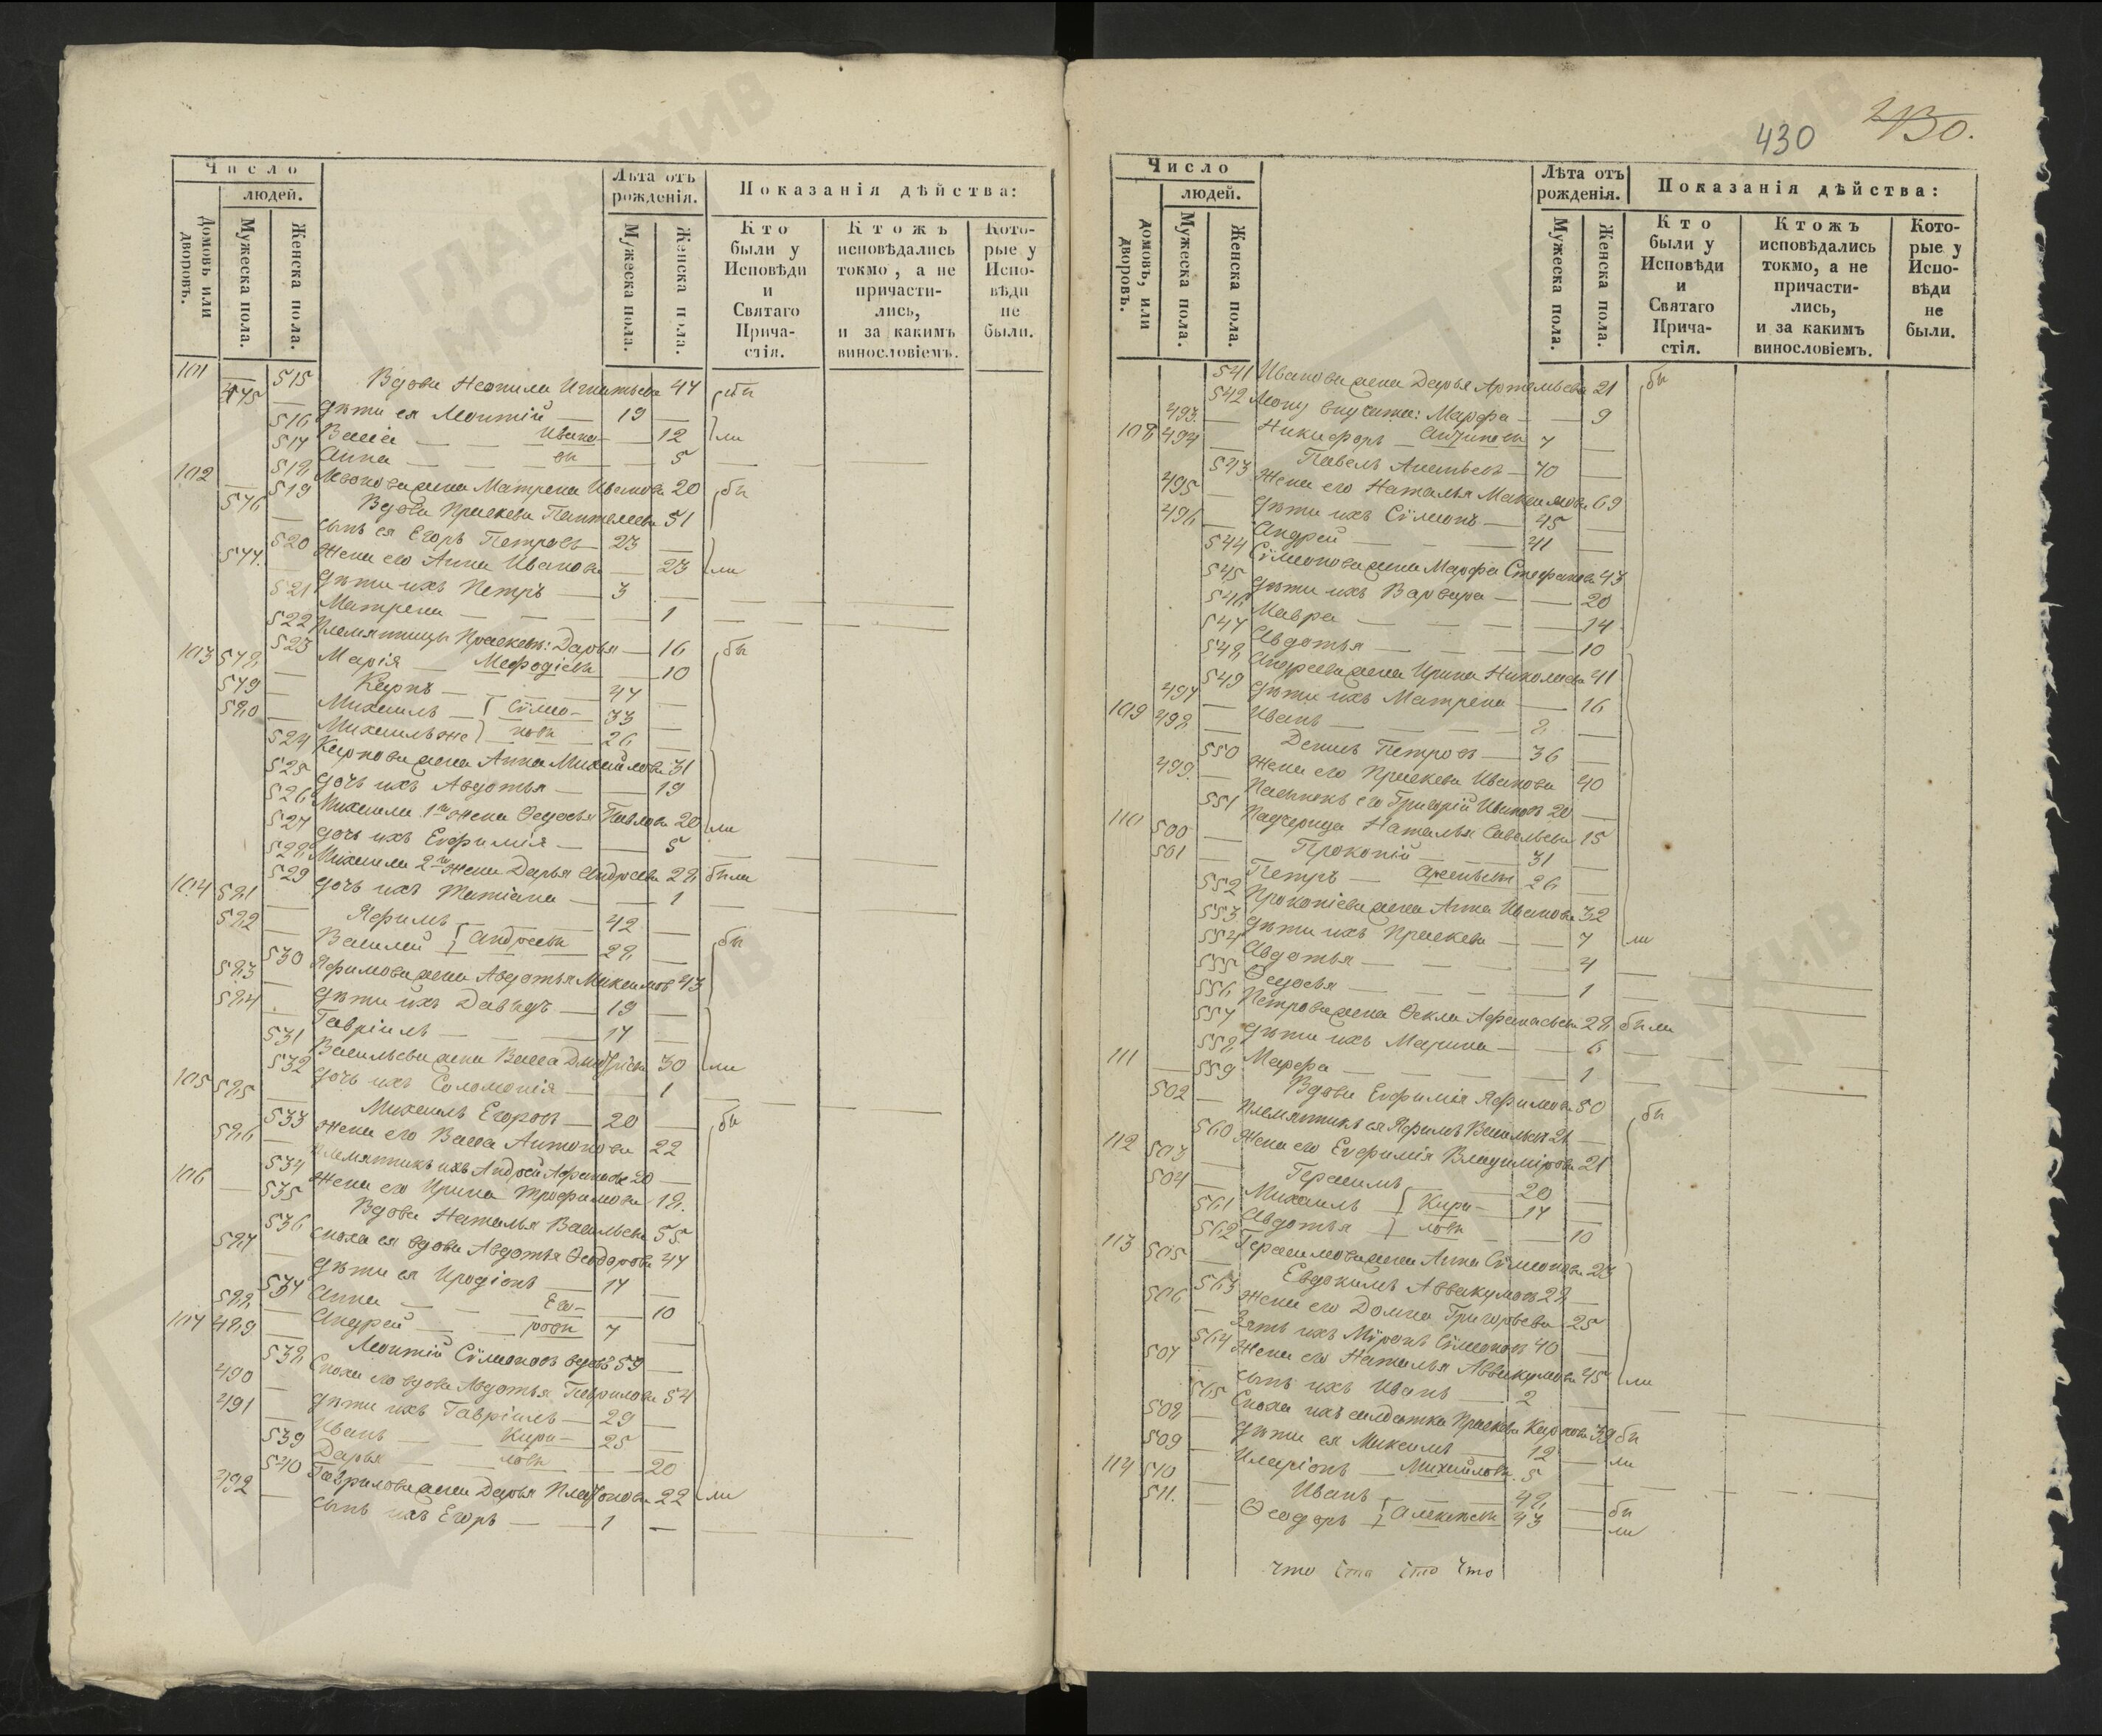 Число
людей.
Домовъ или дворовъ.
Мужеска пола.
Женска пола.
Лѣта отъ рожденія.
Мужеска пола.
Женска пола.
Показанія дѣйства:
Кто были у Исповѣди и Святаго Причастія.
Ктожъ исповѣдались токмо, а не причастились, и за какимъ винословіемъ.
Которые у Исповѣди не были.
101 515 Вдова Неонила Игнатьева 47 бы
475 дѣти ея Леонтій 19
516 Васса Ивано- 12 ли
517 Анна вы 5
518 Леонова жена Матрена Иванова 20 бы
102 519 Вдова Праскева Пантелеева 51
576 сынъ ея Егоръ Петровъ 23
520 Жена его Анна Иванова 23 ли
577 дѣти ихъ Петръ 3
521 Матрена 1
522 Племянницы Праскевы: Дарья 16 бы
523 Марія Мефодіевы 10
103 578 Карпъ 47
579 Михаилъ Сѵмо- 33
580 Михаилъ же новы 26
524 Карпова жена Анна Михайлова 31
525 дочь ихъ Авдотья 19
526 Михаила 1го жена Ѳедосья Павлова 20 ли
527 дочь ихъ Евфимія 5
528 Михаила 2го жена Дарья Андреева 28 были
529 дочь ихъ Татіана 1
104 581 Яфимъ 42
582 Василій Андреевы 28 бы
530 Яфимова жена Авдотья Максимов 43
583 дѣти ихъ Давыдъ 19
584 Гавріилъ 17
531 Васильева жена Васса Дмитріева 30 ли
532 дочь ихъ Соломонія 1
105 585 Михаилъ Егоровъ 20 бы
533 Жена его Васса Антонова 22
586 Племянникъ ихъ Андрей 20
534 Жена его Ирина Трофимова 18
106 535 Вдова Наталья Васильева 55
536 сноха ея вдова Авдотья Ѳеодорова 47
587 дѣти ея Иродіонъ 17
537 Анна Его- 10
588 Андрей ровы 7
107 489 Леонтій Сѵмоновъ вдовъ 59
538 Сноха его вдова Авдотья Гаврилова 54
490 дѣти ихъ Гавріилъ 29
491 Иванъ Кири- 25
539 Дарья ловы 20
540 Гаврилова жена Дарья Платонова 22 ли
492 сынъ ихъ Егоръ 1
430
430.
Число
людей.
домовъ, или дворовъ.
Мужеска пола.
Женска пола.
Лѣта отъ рожденія.
Мужеска пола.
Женска пола.
Показанія дѣйства:
Кто были у Исповѣди и Святаго Причастія.
Ктожъ исповѣдались токмо, а не причастились, и за какимъ винословіемъ.
Которые у Исповѣди не были.
541 Иванова жена Дарья Артемьева 21 бы
542 Леону внучата: Марфа 9
493 Никифоръ Антиповы 7
108 494 Павелъ 70
543 Жена его Наталья Максимова 69
495 дѣти ихъ Сѵмонъ 45
496 Андрей 41
544 Сѵмонова жена Марфа Стефанова 43
545 дѣти ихъ Варвара 20
546 Мавра 14
547 Авдотья 10
548 Андреева жена Ирина Николаева 41
549 дѣти ихъ Матрена 16
497 Иванъ 8
109 498 Денисъ Петровъ 36
550 Жена его Праскева Иванова 40
499 Пасынокъ его Григорій Ивановъ 20
551 Падчерица Наталья Савельева 15
110 500 Прокопій 31
501 Петръ Арсеньевы 26
552 Прокопіева жена Анна Иванова 32
553 дѣти ихъ Праскева 7 ли
554 Авдотья 4
555 Ѳедосья 1
556 Петрова жена Ѳекла Афанасьева 28 были
557 дѣти ихъ Марина 6
558 Марфа 1
111 559 Вдова Евфимія Яфимова 50 бы
502 Племянникъ ея Яфимъ Васильевъ 21
560 Жена его Евфимія Владимірова 21
112 503 Герасимъ 20
504 Михаилъ Кири- 17
561 Авдотья ловы 10
562 Герасимова жена Анна Сѵмонова 23
113 505 Евдокимъ Аввакумовъ 28
563 Жена его Домна Григорьева 25
506 Зять ихъ Мѵронъ Сѵмоновъ 40
564 Жена его Наталья Аввакумова 45 ли
507 сынъ ихъ Иванъ 2
565 Сноха ихъ солдатка Праскева Карпова 39 бы
508 дѣти ея Максимъ 12 ли
509 Иларіонъ Михайловы 5
114 510 Иванъ 48 бы
511 Ѳеодоръ Алексѣевы 43 ли
что что что что